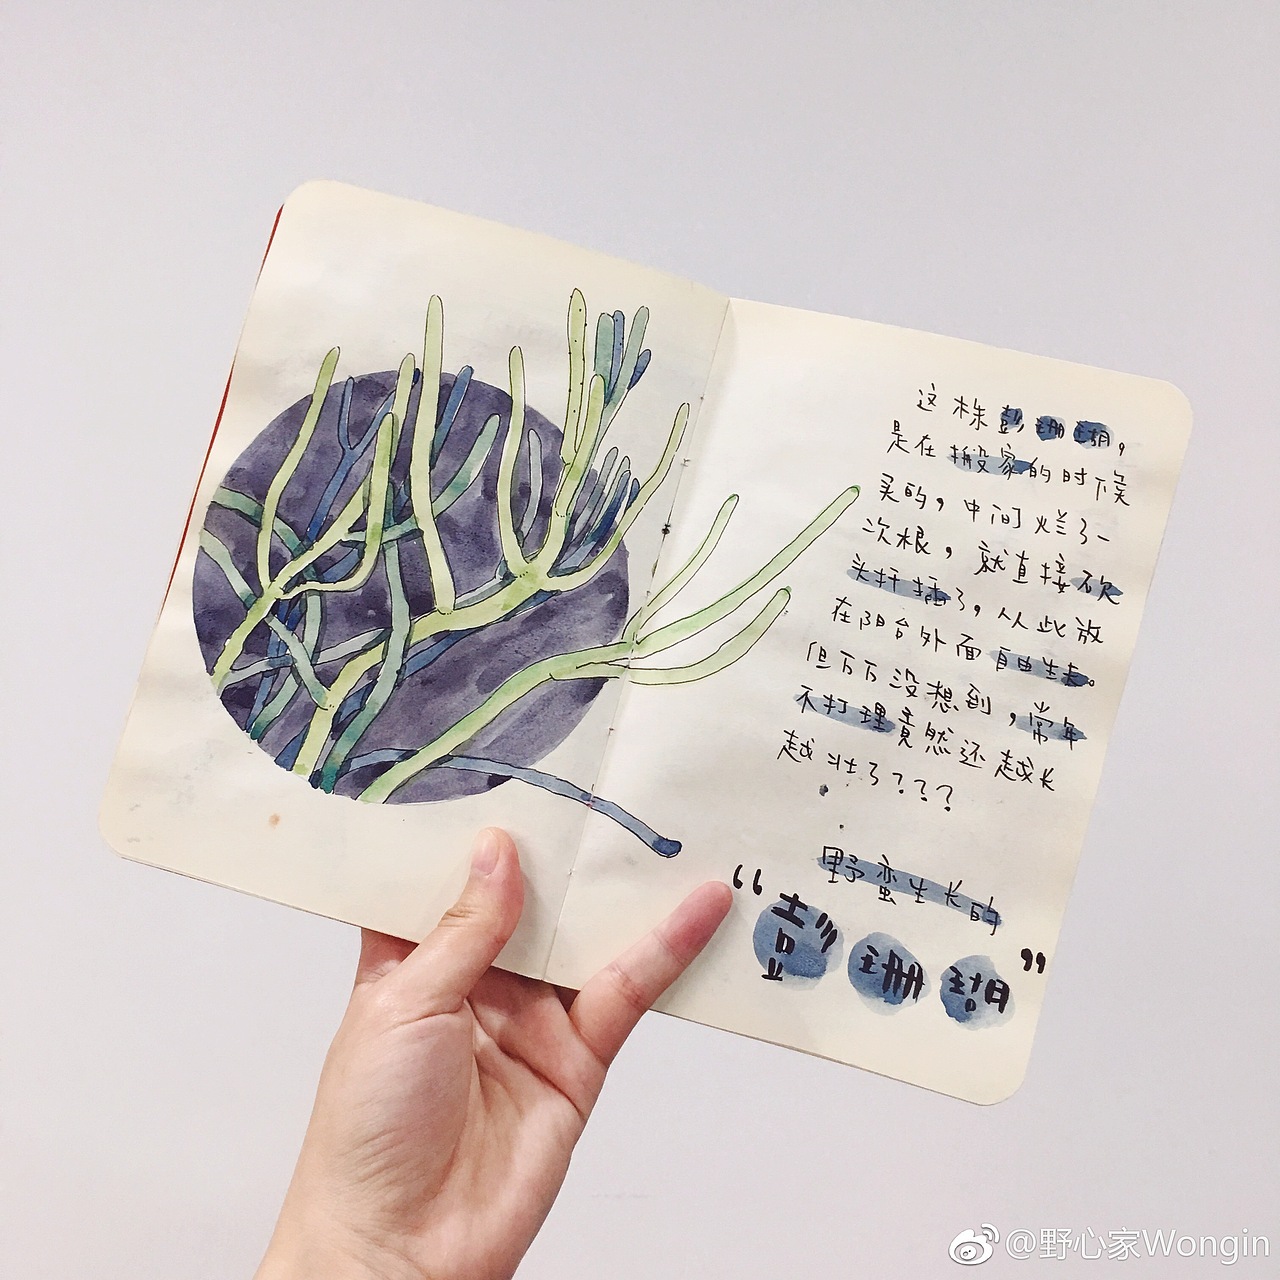 这株彭珊瑚，
是在搬家的时候
买的，中间烂了一
次根，就直接砍
头扦插了，从此放
在阳台外面自由生长。
但万万没想到，常年
不打理竟然还越长
越壮了？？？
野蛮生长的
“彭珊瑚”
@野心家Wongin